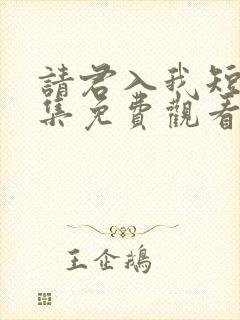 請君入我短
集免費觀看
王企鵝